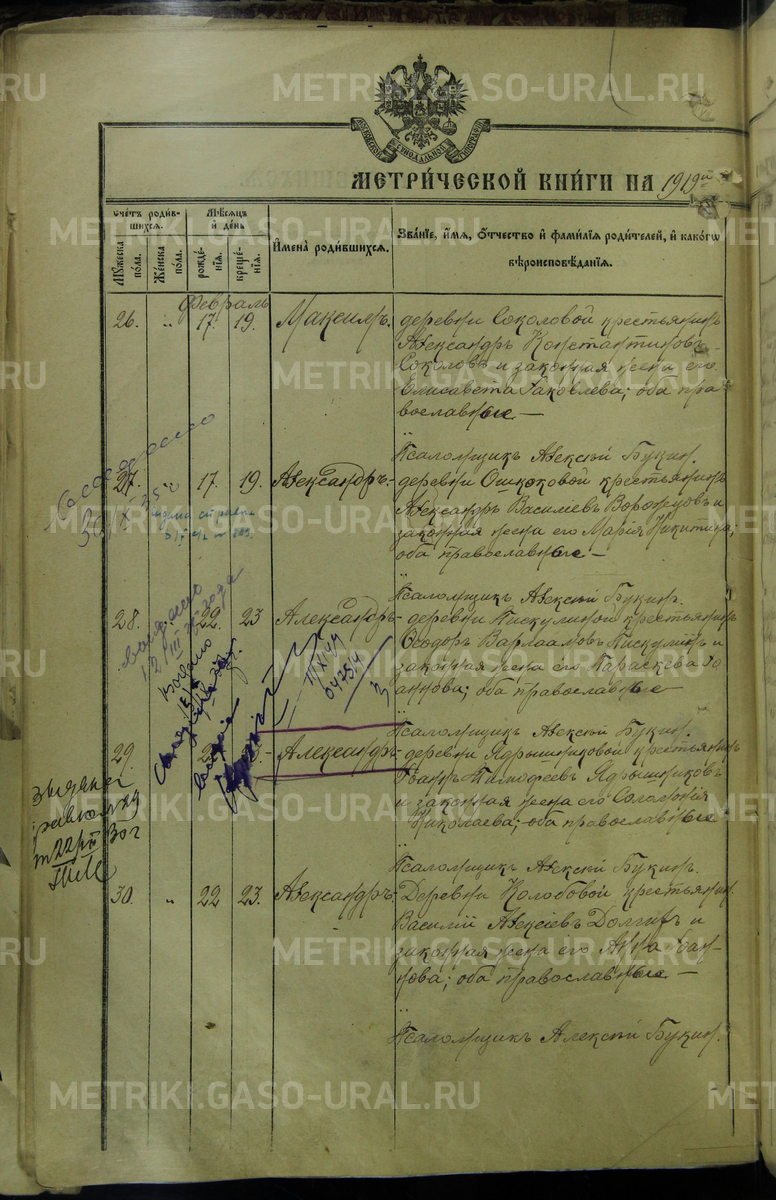 METRIKI.GASO-URAL.RU
МОСКОВСКОЙ СѴНОДАЛЬНОЙ ТИПОГРАФІИ
МЕТРИ́ЧЕСКОЙ КНИ́ГИ НА 1919й
Счетъ родившихся.
Мѣсяцъ и день
Имена родившихся.
Званіе, имя, отчество и фамилія родителей, и какого вѣроисповѣданія.
Мужеска пола.
Женска пола.
рожденія.
крещенія.
Февраль
26. " 17. 19. Максимъ. деревни Соколовой крестьянинъ
Александръ Константиновъ
Соколовъ и законная жена его
Елисавета Яковлева; оба пра-
вославные —
Псаломщикъ Алексѣй Букинъ.
27. 17. 19. Александръ. деревни Ошкоковой крестьянинъ
Александръ Василіевъ Воронцовъ и
законная жена его Марія Никитина;
оба православные —
Псаломщикъ Алексѣй Букинъ.
28. 22. 23 Александръ деревни Пискулиной крестьянинъ
Ѳеодоръ Варлаамовъ Пискулинъ и
законная жена его Параскева Іо-
аннова; оба православные
Псаломщикъ Алексѣй Букинъ.
29. Александръ деревни Ядрышниковой крестьянинъ
Іоаннъ Тимофеевъ Ядрышниковъ
и законная жена его Соломонія
Николаева; оба православные
Псаломщикъ Алексѣй Букинъ.
30. " 22 23. Александръ. Деревни Колобовой крестьянинъ
Василій Алексіевъ Долгихъ и
законная жена его Анна Іоан-
нова; оба православные —
Псаломщикъ Алексѣй Букинъ.